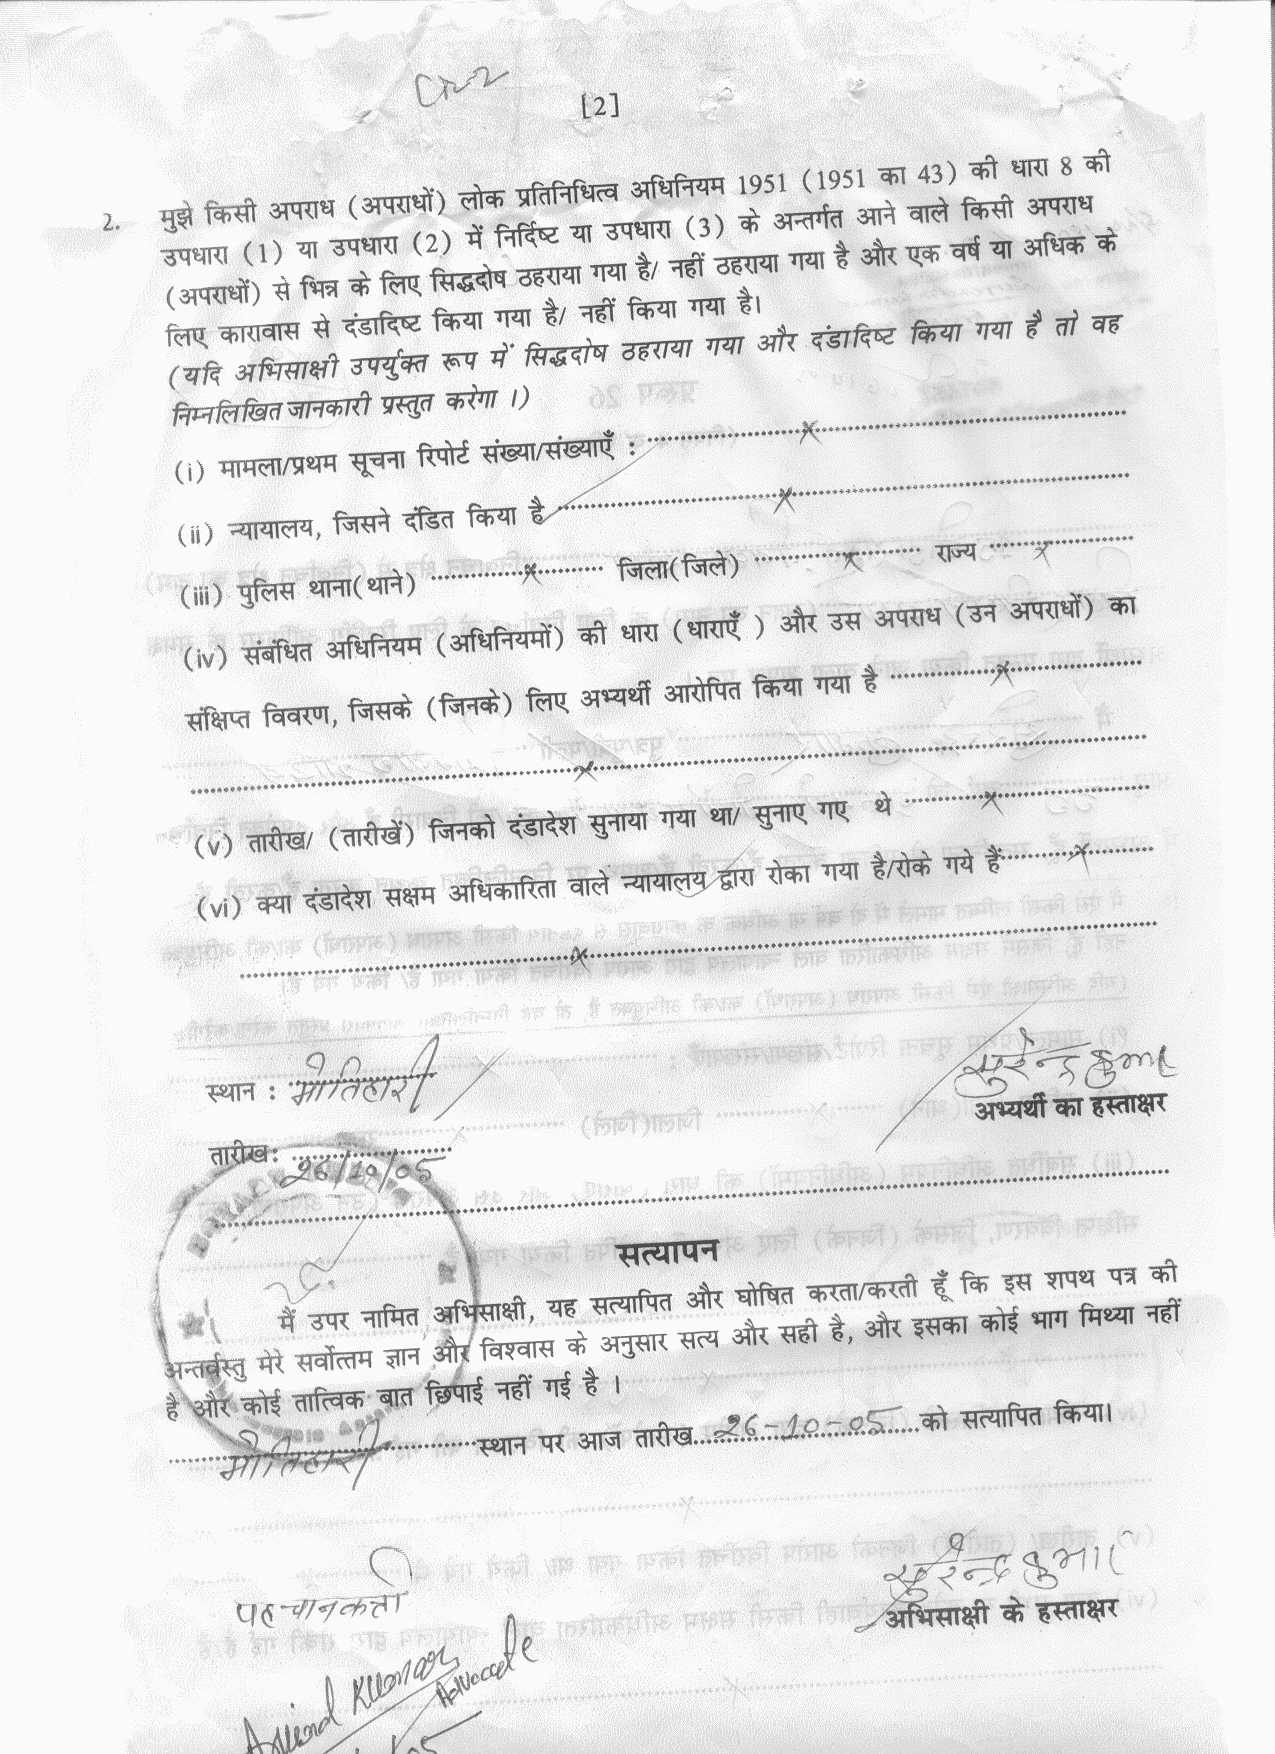 [2]
2. मुझे किसी अपराध (अपराधों) लोक प्रतिनिधित्व अधिनियम 1951 (1951 का 43) की धारा 8 की
उपधारा (1) या उपधारा (2) में निर्दिष्ट या उपधारा (3) के अन्तर्गत आने वाले किसी अपराध
(अपराधों) से भिन्न के लिए सिद्धदोष ठहराया गया है/ नहीं ठहराया गया है और एक वर्ष या अधिक के
लिए कारावास से दंडादिष्ट किया गया है/ नहीं किया गया है।
(यदि अभिसाक्षी उपर्युक्त रूप में सिद्धदोष ठहराया गया और दंडादिष्ट किया गया है तो वह
निम्नलिखित जानकारी प्रस्तुत करेगा ।)
(i) मामला/प्रथम सूचना रिपोर्ट संख्या/संख्याएँ : x
(ii) न्यायालय, जिसने दंडित किया है x
(iii) पुलिस थाना(थाने) x जिला(जिले) x राज्य x
(iv) संबंधित अधिनियम (अधिनियमों) की धारा (धाराएँ ) और उस अपराध (उन अपराधों) का
संक्षिप्त विवरण, जिसके (जिनके) लिए अभ्यर्थी आरोपित किया गया है x
x
(v) तारीख/ (तारीखें) जिनको दंडादेश सुनाया गया था/ सुनाए गए थे x
(vi) क्या दंडादेश सक्षम अधिकारिता वाले न्यायालय द्वारा रोका गया है/रोके गये हैं x
x
स्थान : मोतिहारी
सुरेन्द्र कुमार
अभ्यर्थी का हस्ताक्षर
तारीख: 26/10/05
सत्यापन
मैं उपर नामित अभिसाक्षी, यह सत्यापित और घोषित करता/करती हूँ कि इस शपथ पत्र की
अन्तर्वस्तु मेरे सर्वोत्तम ज्ञान और विश्वास के अनुसार सत्य और सही है, और इसका कोई भाग मिथ्या नहीं
है और कोई तात्विक बात छिपाई नहीं गई है ।
मोतिहारी स्थान पर आज तारीख 26-10-05 को सत्यापित किया।
सुरेन्द्र कुमार
अभिसाक्षी के हस्ताक्षर
पहचानकर्ता
Arvind Kumar
Advocate